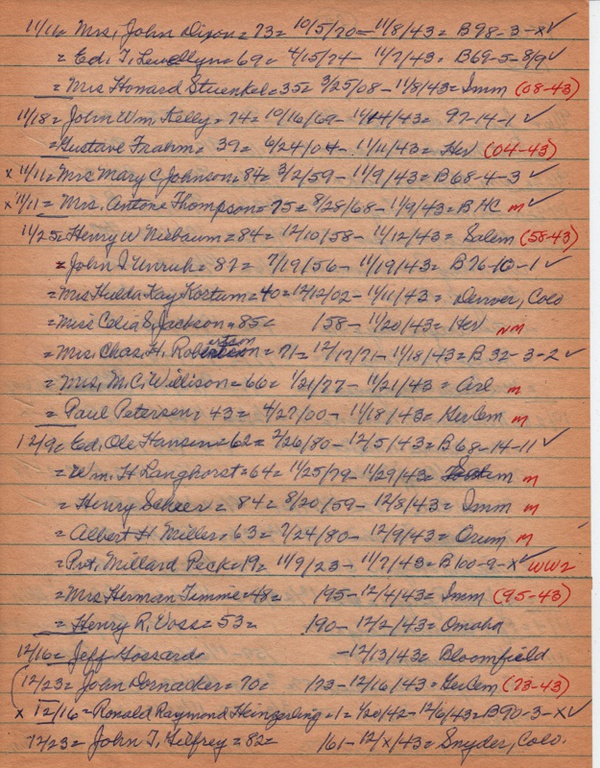 11/11= Mrs. John Dixon = 73= 10/5/70 - 11/8/43= B98-3-X✓
= Ed. T. Lewellyn= 69= 4/15/74- 11/7/43= B69-5-8/9✓
= Mrs Howard Stuenkel= 35= 3/25/08- 11/8/43= Imm (08-43)
11/18= John Wm. Kelly= 74= 10/16/69- 11/14/43= 97-14-1 ✓
= Gustave Frahm= 39= 6/24/04- 11/11/43= Her (04-43)
x 11/11= Mrs Mary C Johnson= 84= 3/2/59- 11/9/43= B68-4-3 ✓
x 11/11= Mrs. Antone Thompson= 75= 8/28/68- 11/9/43= BHC m ✓
11/25= Henry W Niebaum= 84= 12/10/58- 11/12/43= Salem (58-43)
= John I. Unruh= 87= 7/19/56- 11/19/43= B76-10-1 ✓
= Mrs Hulda Kay Kostum= 40= 12/12/02- 11/11/43= Denver, Colo
= Miss Celia S. Jackson= 85= /58- 11/20/43= Her NM
= Mrs. Chas. H. Robertson= 71= 12/17/71- 11/18/43= B 32-3-2 ✓
= Mrs. M.C. Willison= 66= 1/21/77- 11/21/43= Arl m
= Paul Petersen= 43= 4/27/00- 11/18/43= GerCem m
12/9= Ed. Ole Hansen= 63= 2/26/80- 12/5/43= B68-14-11 ✓
= Wm. H Langhorst= 64= 11/25/79- 11/29/43= m
= Henry Scheer= 84= 8/20/59- 12/8/43= Imm m
= Albert H. Miller= 63= 7/24/80- 12/9/43= Orum m
= Pvt. Millard Peck= 19= 11/9/23- 11/7/43= B100-9-X ✓ WW2
= Mrs Herman Timme= 48= /95- 12/4/43= Imm (95-43)
= Henry R. Voss= 53= /90- 12/2/43= Omaha
12/16= Jeff Gossard -12/13/43= Bloomfield
(12/23= John Dornacker= 70= /73- 12/16/43= GerCem (73-43)
x 12/16= Ronald Raymond Heingerling= 1= 1/20/42- 12/6/43= B90-3-X✓
12/23= John T. Gilfrey= 82= /61- 12/X/43= Snyder, Colo.